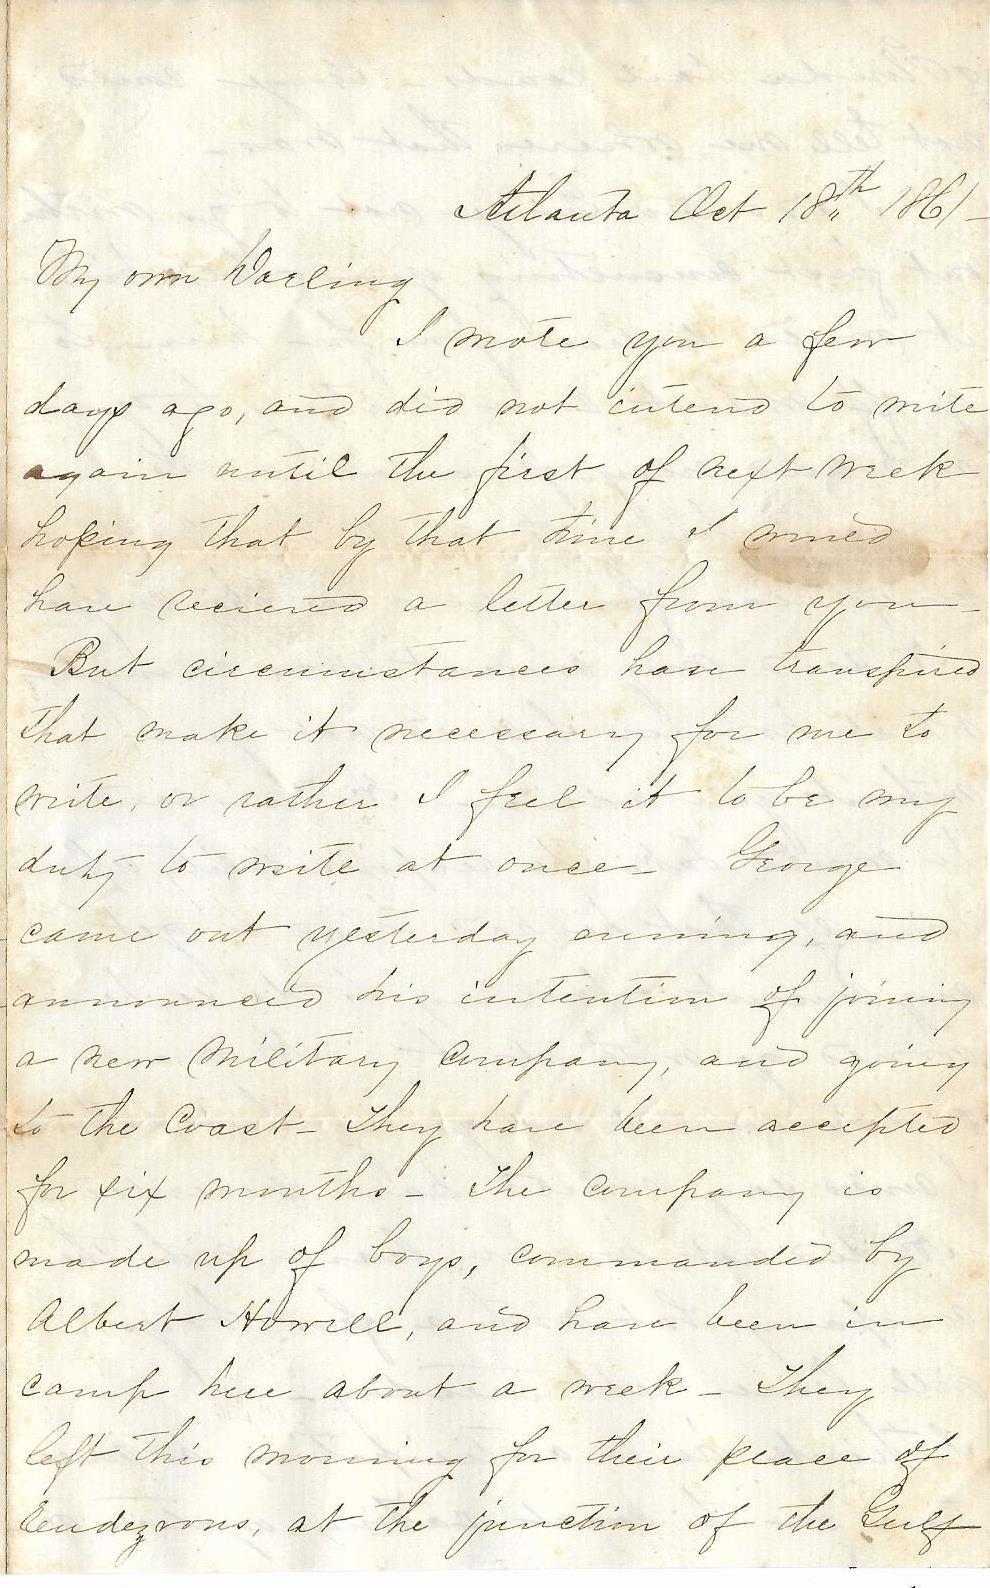 Atlanta Oct 18th 1861-
My own Darling
I wrote you a few
days ago, and did not intend to write
again until the first of next week
hoping that by that time I would
have recieved a letter from you-
But circumstances have transpired
that make it necessary for me to
write, or rather I feel it to be my
duty to write at once- George
came out yesterday evening, and
announced his intention of joining
a new Military Company, and going
to the Coast- They have been accepted
for six months- The Company is
made up of boys, commanded by
Albert Howell, and have been in
camp here about a week- They
left this morning for their place of
Rendezvous, at the junction of the Gulf